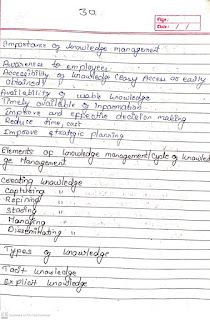 30
Date: / /
Importance of knowledge management
Awareness to employees
Accessibility of knowledge (Easy Access or easily
obtained)
Availability of usable knowledge
Timely available of Information
Improve and effective decision making
Reduce time, cost
Improve strategic planning
Elements of knowledge management/cycle of knowle
dge Management
Creating knowledge
Capturing "
Refining "
Storing "
Managing "
Disseminating "
Types of knowledge
Tacit knowledge
Explicit knowledge